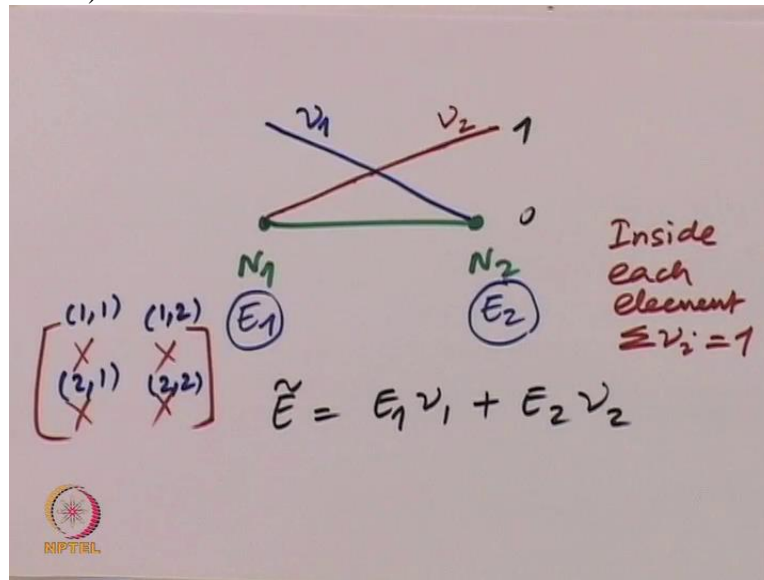 )
ν1 ν2 1
0
N1 N2
E1 E2
Inside
each
element
Σνi = 1
(1,1) (1,2)
X X
(2,1) (2,2)
X X
Ẽ = E1ν1 + E2ν2
NPTEL